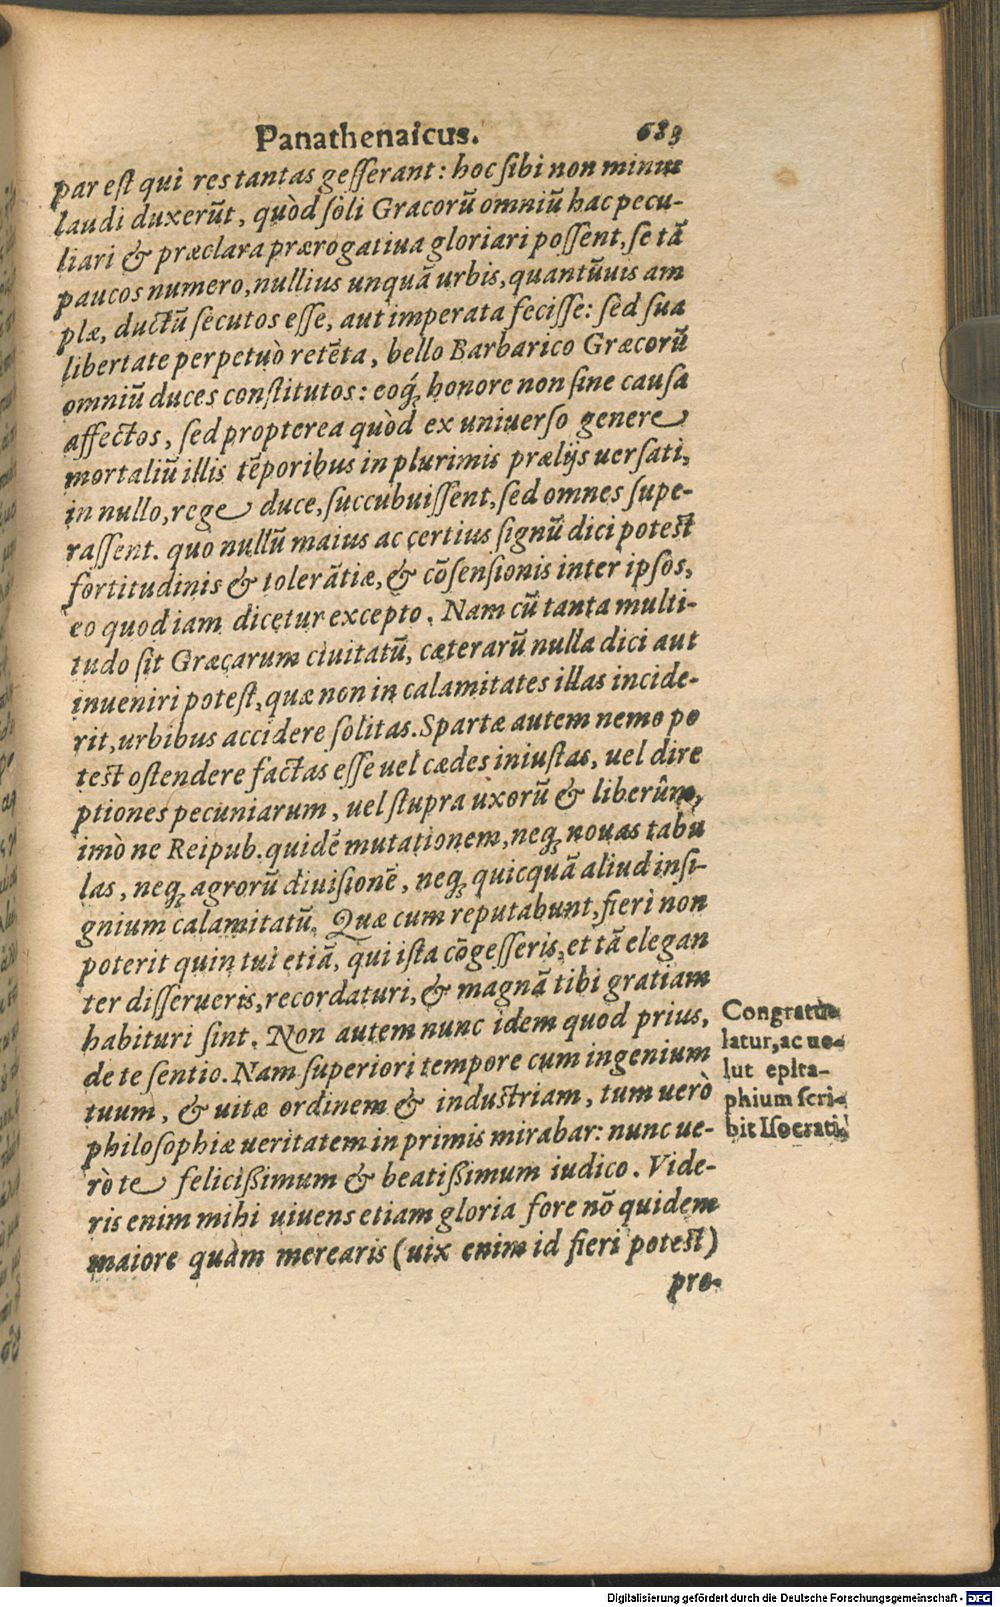 Panathenaicus. 683
par est qui res tantas gesserant: hoc sibi non minus
laudi duxerũt, quòd soli Græcorũ omniũ hac pecu-
liari & præclara prærogatiua gloriari possent, se tã
paucos numero, nullius unquã urbis, quantũuis am
plæ, ductũ secutos esse, aut imperata fecisse: sed sua
libertate perpetuò retẽta, bello Barbarico Græcorũ
omniũ duces constitutos: eoq́; honore non sine causa
affectos, sed propterea quòd ex uniuerso genere
mortaliũ illis tẽporibus in plurimis prælijs uersati,
in nullo, rege duce, succubuissent, sed omnes supe-
rassent. quo nullũ maius ac certius signũ dici potest
fortitudinis & tolerãtiæ, & cõsensionis inter ipsos,
eo quod iam dicetur excepto. Nam cũ tanta multi-
tudo sit Græcarum ciuitatũ, cæterarũ nulla dici aut
inueniri potest, quæ non in calamitates illas incide-
rit, urbibus accidere solitas. Spartæ autem nemo po
test ostendere factas esse uel cædes iniustas, uel dire
ptiones pecuniarum, uel stupra uxorũ & liberûm,
imò ne Reipub. quidẽ mutationem, neq; nouas tabu
las, neq; agrorũ diuisionẽ, neq; quicquã aliud insi-
gnium calamitatũ. Quæ cum reputabunt, fieri non
poterit quin tui etiã, qui ista cõgesseris, et tã elegan
ter disserueris, recordaturi, & magnã tibi gratiam
habituri sint. Non autem nunc idem quod prius,
de te sentio. Nam superiori tempore cum ingenium
tuum, & uitæ ordinem & industriam, tum uerò
philosophiæ ueritatem in primis mirabar: nunc ue-
rò te felicißimum & beatißimum iudico. Vide-
ris enim mihi uiuens etiam gloria fore nõ quidem
maiore quàm merearis (uix enim id fieri potest)
pre-
Congratu-
latur, ac ue-
lut epita-
phium scri-
bit Isocrati.
Digitalisierung gefördert durch die Deutsche Forschungsgemeinschaft - DFG